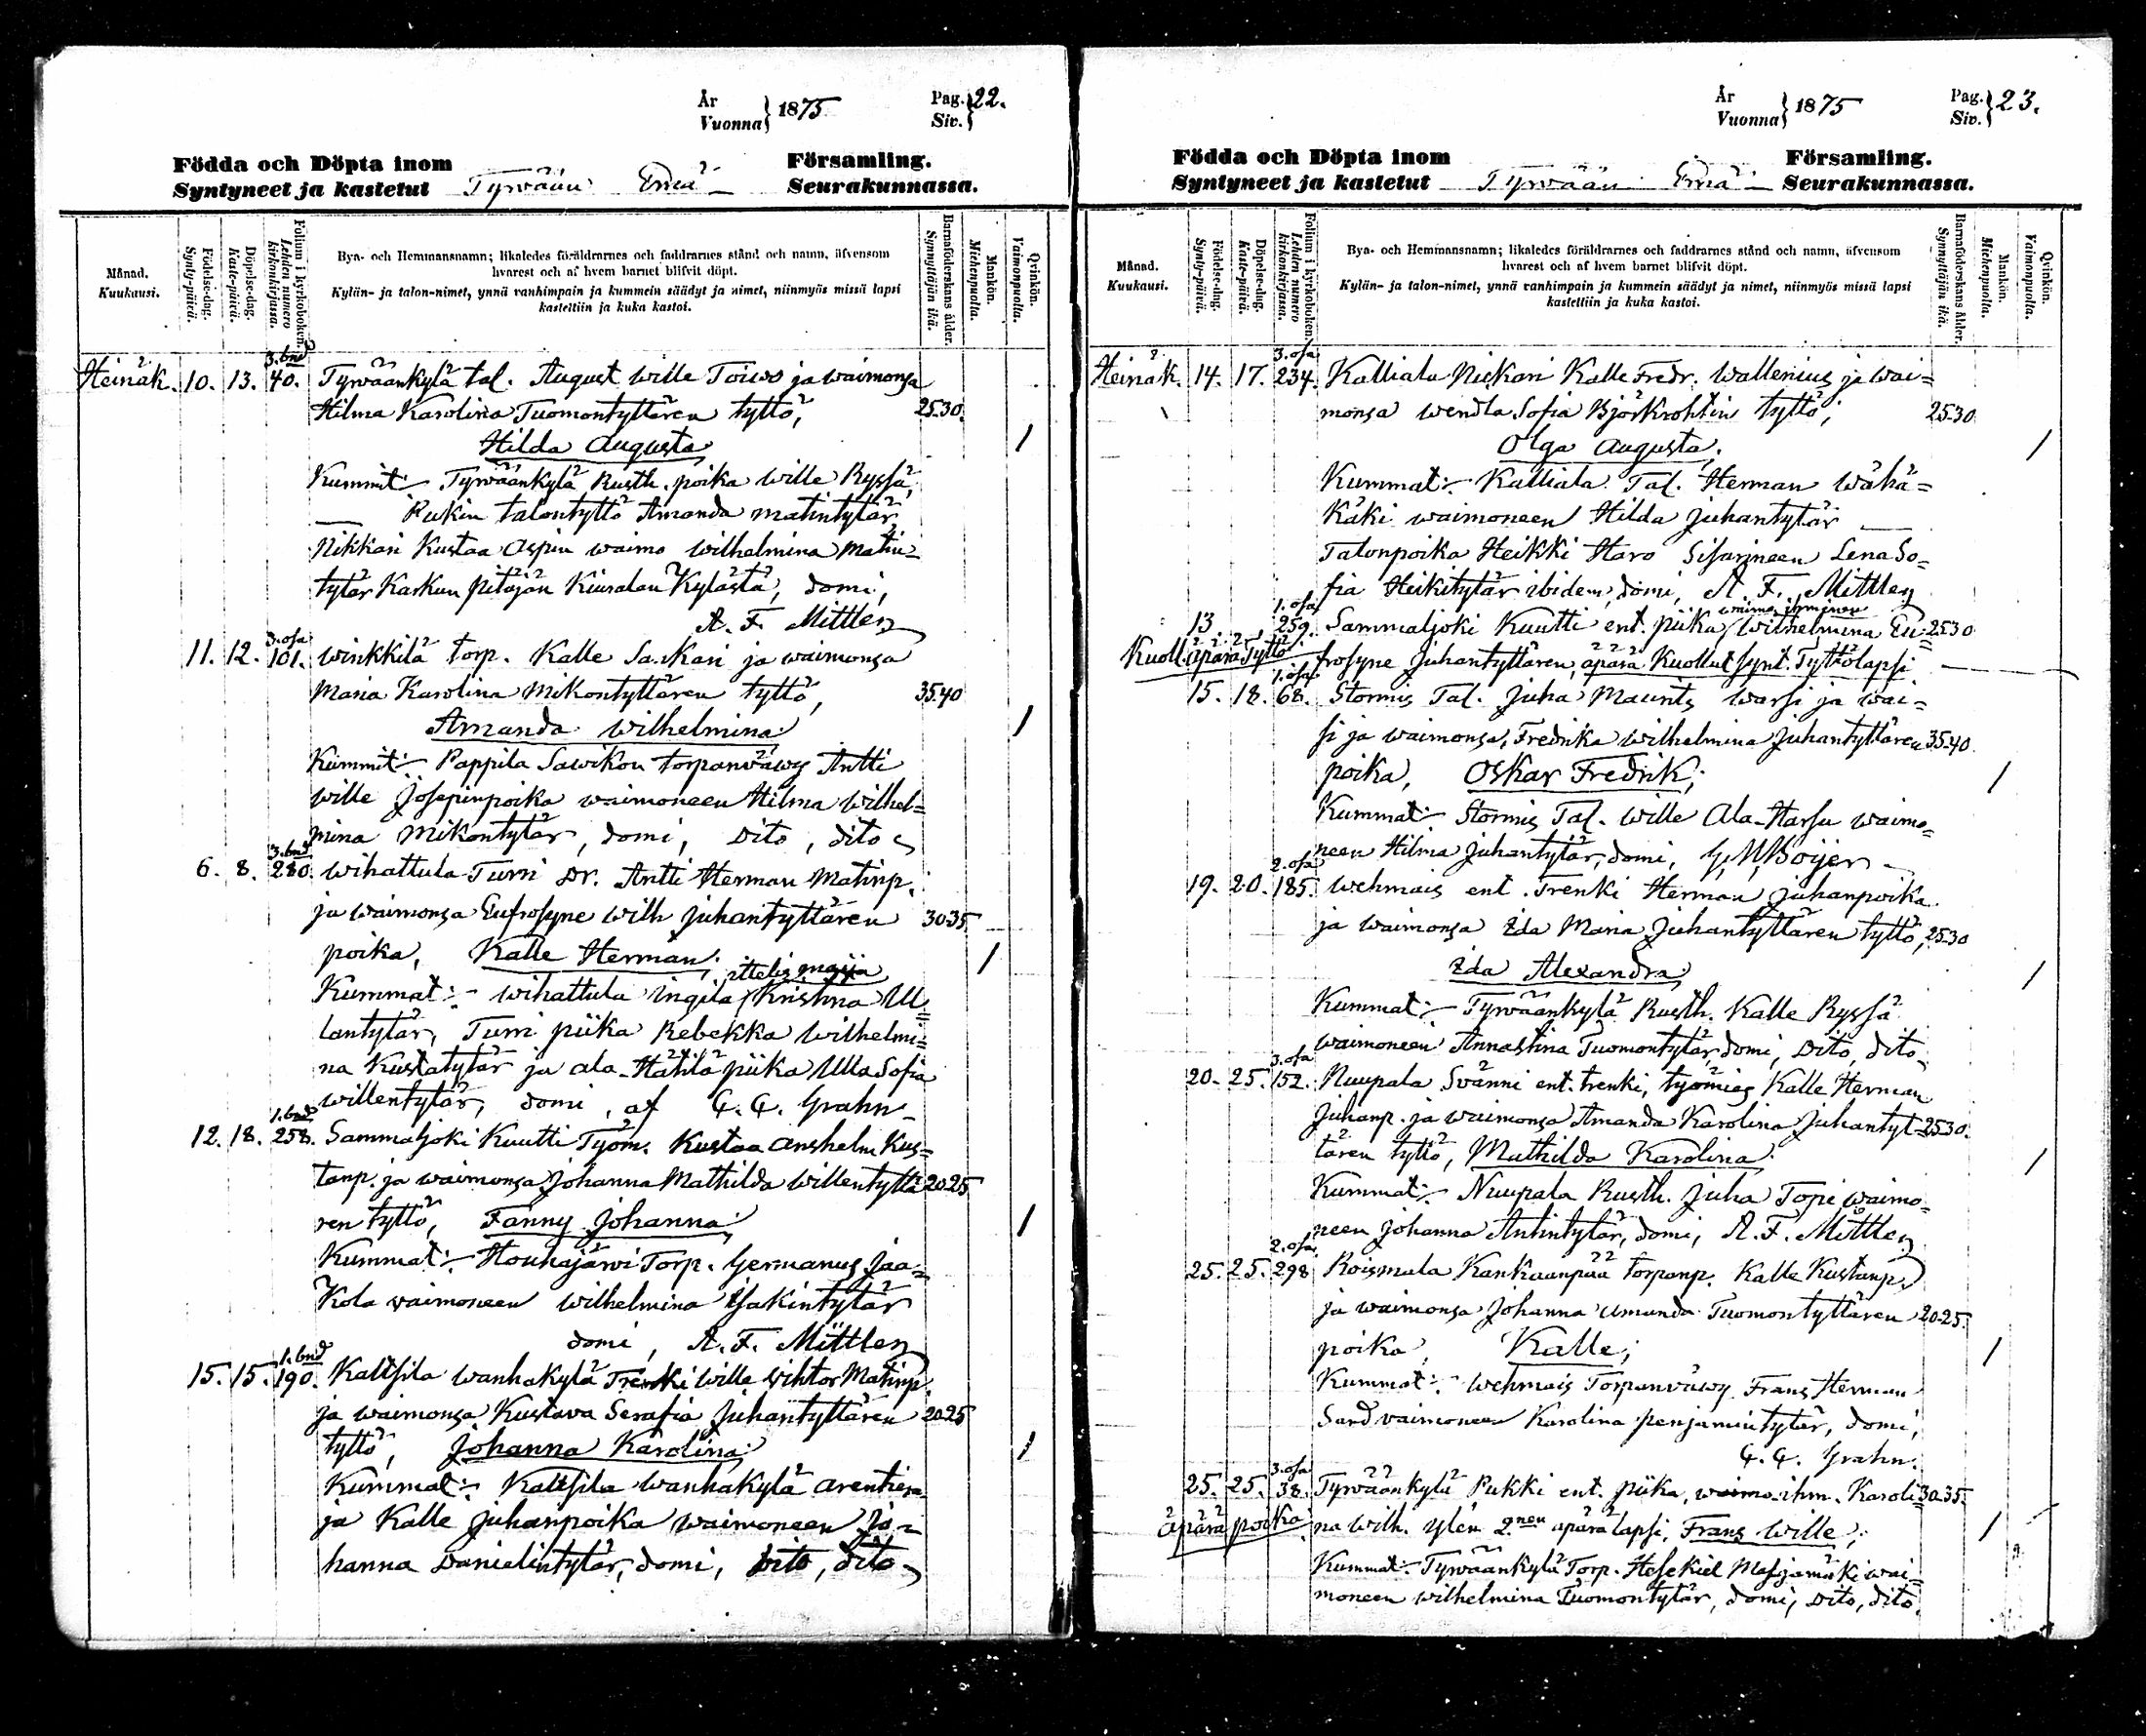 År
Vuonna } 1875
Pag.
Siv. } 22.
Födda och Döpta inom
Syntyneet ja kastetut Tyrvään Emä Församling.
Seurakunnassa.
Månad.
Kuukausi.
Födelse-dag.
Synty-päivä.
Döpelse-dag.
Kaste-päivä.
Folium i kyrkoboken.
Lehden numero kirkonkirjassa.
Bya- och Hemmansnamn; likaledes föräldrarnes och faddrarnes stånd och namn, äfvensom
hvarest och af hvem barnet blifvit döpt.
Kylän- ja talon-nimet, ynnä vanhimpain ja kummein säädyt ja nimet, niinmyös missä lapsi
kastettiin ja kuka kastoi.
Barnaföderskans ålder.
Synnyttäjän ikä.
Mankön.
Miehenpuolia.
Qvinkön.
Vaimonpuolia.
Heinäk. 10. 13. 3. bnd 40. Tyrväänkylä tal. August Wille Toiwo ja waimonsa
Hilma Karolina Tuomontyttären tyttö, 25.30.
Hilda Augusta /
Kummit:- Tyrväänkylä Rusth. poika Wille Ryssä,
Pukin talontyttö Amanda Matintytär
Nikkari Kustaa Aspin waimo Wilhelmina Matin-
tytär Karkun pitäjän Kiuralan Kylästä, domi,
A. F. Mittler
11. 12. 3. osa 101. Winkkilä torp. Kalle Saikari ja waimonsa
Maria Karolina Mikontyttären tyttö, 35.40
Amanda Wilhelmina /
Kummit:- Pappila Sawikon torpanwäwy Antti
Wille Josepinpoika waimoneen Hilma Wilhel=
mina Mikontytär, domi, Dito, dito
6. 8. 3. bnd 280. Wihattula Turri Dr. Antti Herman Matinp.
ja waimonsa Eufrosyne Wilh. Juhantyttären 30-35
poika, Kalle Herman; /
ittelis maija
Kummat:- Wihattula Ingilä Kristina Ul=
lantytär, Turri piika Rebekka Wilhelmi=
na Kustatytär ja Ala-Hätilä piika Ulla Sofia
Willentytär, domi, af G. G. Grahn
12. 18. 1. bnd 258. Sammaljoki Kuutti Työm. Kustaa Anshelm Kus=
tanp. ja waimonsa Johanna Mathilda Willentyttä 20.25
ren tyttö, Fanny Johanna; /
Kummat:- Houhajärwi Torp. Germanus Jaa=
Kola waimoneen Wilhelmina Isakintytär
domi, A. F. Mittler
15. 15. 1. bnd 190. Kaltsila Wanhakylä Trenki Wille Wihtor Matinp.
ja waimonsa Kustava Serafia Juhantyttären 20.25
tyttö, Johanna Karolina; /
Kummat:- Kaltsila Wanhakylä arentiera
ja Kalle Juhanpoika waimoneen Jo=
hanna Danielintytär, domi, Dito, dito
År
Vuonna } 1875
Pag.
Siv. } 23.
Födda och Döpta inom
Syntyneet ja kastetut Tyrvään Emä Församling.
Seurakunnassa.
Månad.
Kuukausi.
Födelse-dag.
Synty-päivä.
Döpelse-dag.
Kaste-päivä.
Folium i kyrkoboken.
Lehden numero kirkonkirjassa.
Bya- och Hemmansnamn; likaledes föräldrarnes och faddrarnes stånd och namn, äfvensom
hvarest och af hvem barnet blifvit döpt.
Kylän- ja talon-nimet, ynnä vanhimpain ja kummein säädyt ja nimet, niinmyös missä lapsi
kastettiin ja kuka kastoi.
Barnaföderskans ålder.
Synnyttäjän ikä.
Mankön.
Miehenpuolia.
Qvinkön.
Vaimonpuolia.
Heinäk. 14. 17. 3. osa 234. Kalliala Nickari Kalle Fredr. Wallenius ja wai=
monsa Wendla Sofia Björkrothin tyttö; 25-30
Olga Augusta; /
Kummat:- Kalliala Tal. Herman Wähä=
Käki waimoneen Hilda Juhantytär
Talonpoika Heikki Haro Sisarineen Lena So=
fia Heikitytär ibidem, domi, A. F. Mittler
13 1. osa 259. Sammaljoki Kuutti ent. piika waimo ihminen Wilhelmina Eu= 25.30
Kuoll. äpärä Tyttö frosyne Juhantyttären, äpärä Kuollut synt. Tyttölapsi
15. 18. 1. osa 68. Stormis Tal. Juha Maurits Warsi ja wai=
si ja waimonsa, Fredrika Wilhelmina Juhantyttären 35-40
poika, Oskar Fredrik; /
Kummat:- Stormis Tal. Wille Ala-Harsu waimo=
neen Hilma Juhantytär, domi, G. M. Boijer
19. 20. 2. osa 185. Wehmais ent. Trenki Herman Juhanpoika
ja waimonsa Ida Maria Juhantyttären tyttö, 25-30
Ida Alexandra /
Kummat:- Tyrväänkylä Rusth. Kalle Ryssä
waimoneen Annastina Tuomontytär, domi, Dito, dito
20. 25. 3. osa 152. Nuupala Svänni ent. trenki, työmies Kalle Herman
Juhanp. ja waimonsa Amanda Karolina Juhantyt= 25.30.
tären tyttö, Mathilda Karolina /
Kummat:- Nuupala Rusth. Juha Topi waimo=
neen Johanna Antintytär, domi, A. F. Mittler
25. 25. 2. osa 298 Roismala Kankaanpää torpanp. Kalle Kustanp.
ja waimonsa Johanna Amanda Tuomontyttären 20-25.
poika, Kalle; /
Kummat:- Wehmais Torpanwäwy Frans Herman
Sard waimoneen Karolina Penjamintytär, domi,
G. G. Grahn.
25. 25. 3. osa 38. Tyrväänkylä Pukki ent. piika, waimo-ihm. Karoli= 30.35.
äpärä poika na Wilh. Ylén 2.nen äpärä lapsi, Frans Wille; /
Kummat:- Tyrväänkylä Torp. Hesekiel Masiamäki wai=
moneen Wilhelmina Tuomontytär, domi, Dito, dito.